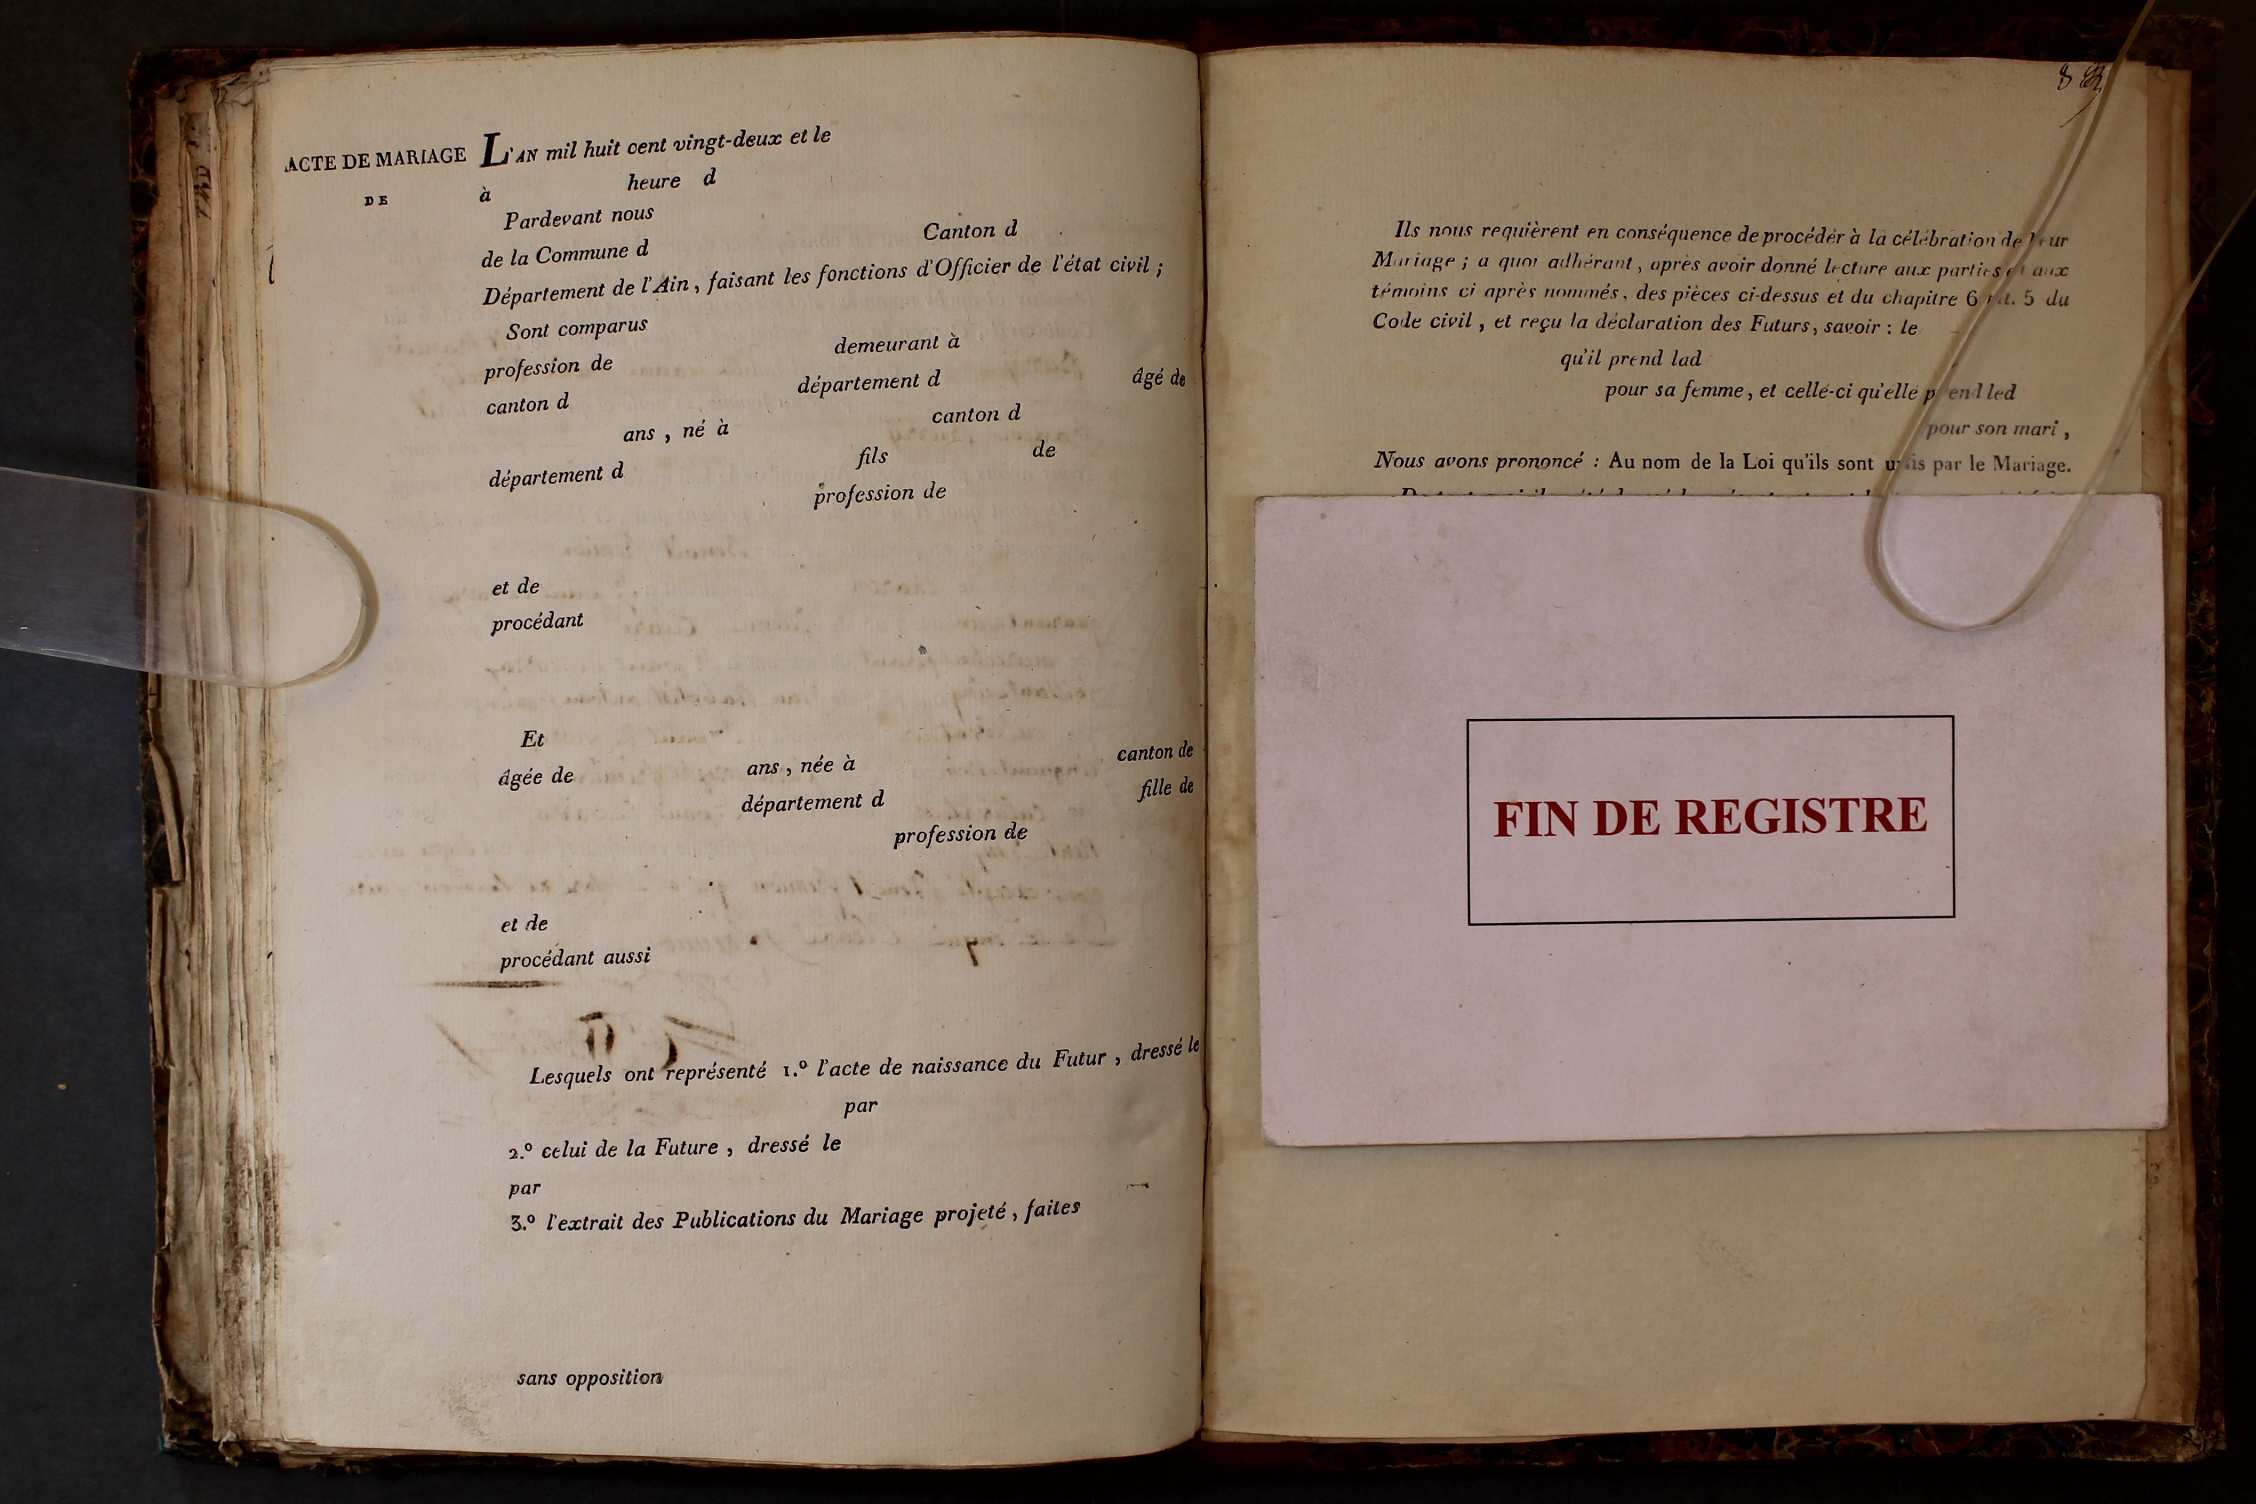 ACTE DE MARIAGE
DE
L'AN mil huit cent vingt-deux et le
à heure d
Pardevant nous
de la Commune d Canton d
Département de l'Ain, faisant les fonctions d'Officier de l'état civil ;
Sont comparus
profession de demeurant à
canton d département d âgé de
ans, né à canton d
département d fils de
profession de
et de
procédant
Et
âgée de ans, née à canton de
département d fille de
profession de
et de
procédant aussi
Lesquels ont représenté 1.º l'acte de naissance du Futur, dressé le
par
2.º celui de la Future, dressé le
par
3.º l'extrait des Publications du Mariage projeté, faites
sans opposition
Ils nous requièrent en conséquence de procéder à la célébration de leur
Mariage ; a quoi adhérant, après avoir donné lecture aux parties et aux
témoins ci après nommés, des pièces ci-dessus et du chapitre 6 tit. 5 du
Code civil, et reçu la déclaration des Futurs, savoir : le
qu'il prend lad
pour sa femme, et celle-ci qu'elle prend led
pour son mari,
Nous avons prononcé : Au nom de la Loi qu'ils sont unis par le Mariage.
FIN DE REGISTRE